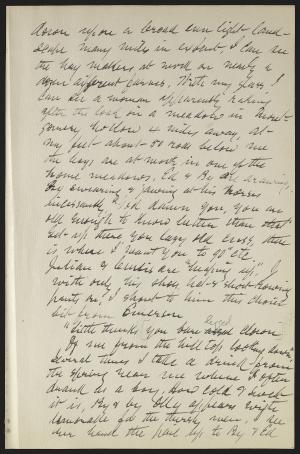 down upon a broad sun light land-
scape many miles in extent. I can see
the hay makers at work on nearly a
dozen different farms. With my glass I
can see a woman apparently raking
after the load on a meadow in Mont-
gomery hollow 4 miles away, at
my feet about 50 rods below me
the boys are at work in one of the
home meadows. Ed & Hy drawing,
Hy swearing & jawing at his horses
incessantly "God damn you, you are
old enough to know better than that
get up there you lazy old cross, there
is where I want you to go" etc.
Julian & Curtis are "raking up". I
with only his shoes, hat & short
pants on; I shout to him this choice
bit from Emerson
"Little thinks you
Of me from the hill top looking down"
Several times I take a drink from
the spring near me where I often
drank as a boy. How cold & sweet
it is, By & by Olly appears with
lemonade for the thirsty men. I see
her hand the pail up to Hy & Ed